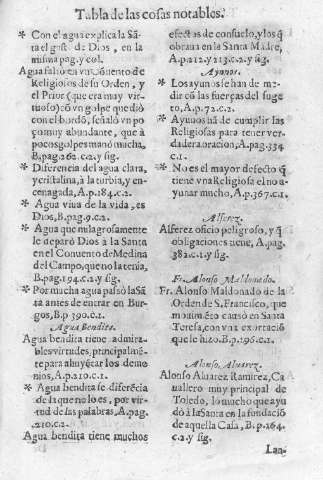 Tabla de las cosas notables.
* Con el agua explica la Sãta el gust. de Dios, en la
misma pag. y col.
Agua faltò en vn Cõuento de
Religiosos de su Orden, y
el Prior (que era muy virtuoso) cõ vn golpe que diò
con el bordõ, señalò vn poço muy abundante, que à
pocos golpes manò mucha,
B.pag.262.c.2.y sig.
* Diferencia del agua clara,
y cristalina, à la turbia, y encenagada, A.p.184.c.2.
* Agua viua de la vida, es
Dios, B.pag.9.c.2.
* Agua que milagrosamente
le deparò Dios a la Santa
en el Conuento de Medina
del Campo, que no la tenia,
B.pag.194.c.2.y sig.
* Por mucha agua passò la Sãta antes de entrar en Burgos, B.p 390.c.2.
Agua Bendita.
Agua bendita tiene admirables virtudes, principalmẽte para ahuyẽtar los demonios, A.p.210.c.1.
* Agua bendita se diferẽcia
de la que no lo es, por virtud de las palabras, A.pag.
210.c.2.
Agua bendita tiene muchos
efectos de consuelo, y los q̃
obraua en la Santa Madre,
A.p.212.y 213.c.2.y sig.
Ayunos.
* Los ayunos se han de medir cũ las fuerças del sugeto, A.p.72.c.2.
* Ayunos hã de cumplir las
Religiosas para tener verdadera oracion, A.pag.334
c.1.
* No es el mayor defecto q̃
tiene vna Religiosa el no ayunar mucho, A.p.367.c.1.
Alferez.
Alferez oficio peligroso, y q̃
obligaciones tiene, A.pag.
382.c.1.y sig.
Fr. Alonso Maldonado.
Fr. Alonso Maldonado de la
Orden de S. Francisco, que
mouimiẽto causò en Santa
Teresa, con vna exortaciõ
que le hizo. B.p.196.c.2.
Alonso Aluarez.
Alonso Aluarez Ramirez, Cauallero muy principal de
Toledo, lo mucho que ayudò à la Santa en la fundaciõ
de aquella Casa, B.p.264.
c.2.y sig.